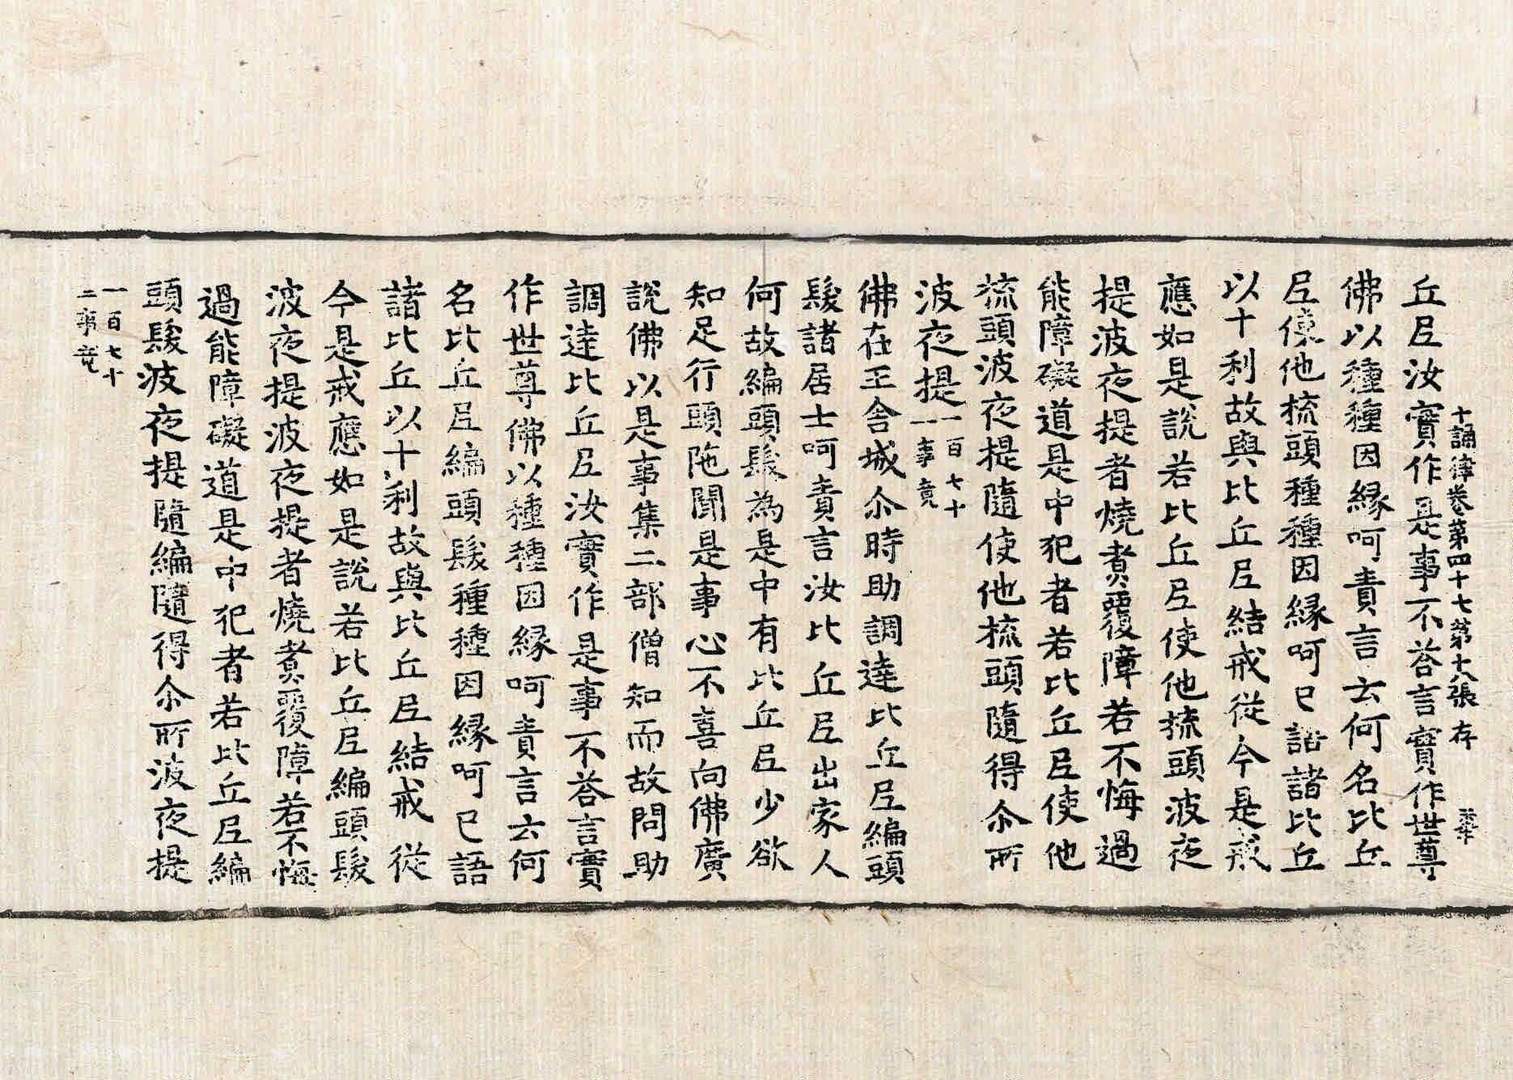 十誦律卷第四十七第十八張 存
丘尼汝實作是事不答言實作世尊
佛以種種因緣呵責言云何名比丘
尼使他梳頭種種因緣呵已語諸比丘
以十利故與比丘尼結戒從今是戒
應如是說若比丘尼使他梳頭波夜
提波夜提者燒煮覆障若不悔過
能障礙道是中犯者若比丘尼使他
梳頭波夜提隨使他梳頭隨得尒所
波夜提一百七十
一事竟
佛在王舍城尒時助調達比丘尼編頭
髮諸居士呵責言汝比丘尼出家人
何故編頭髮為是中有比丘尼少欲
知足行頭陁聞是事心不喜向佛廣
說佛以是事集二部僧知而故問助
調達比丘尼汝實作是事不答言實
作世尊佛以種種因緣呵責言云何
名比丘尼編頭髮種種因緣呵已語
諸比丘以十利故與比丘尼結戒從
今是戒應如是說若比丘尼編頭髮
波夜提波夜提者燒煮覆障若不悔
過能障礙道是中犯者若比丘尼編
頭髮波夜提隨編隨得尒所波夜提
一百七十
二事竟